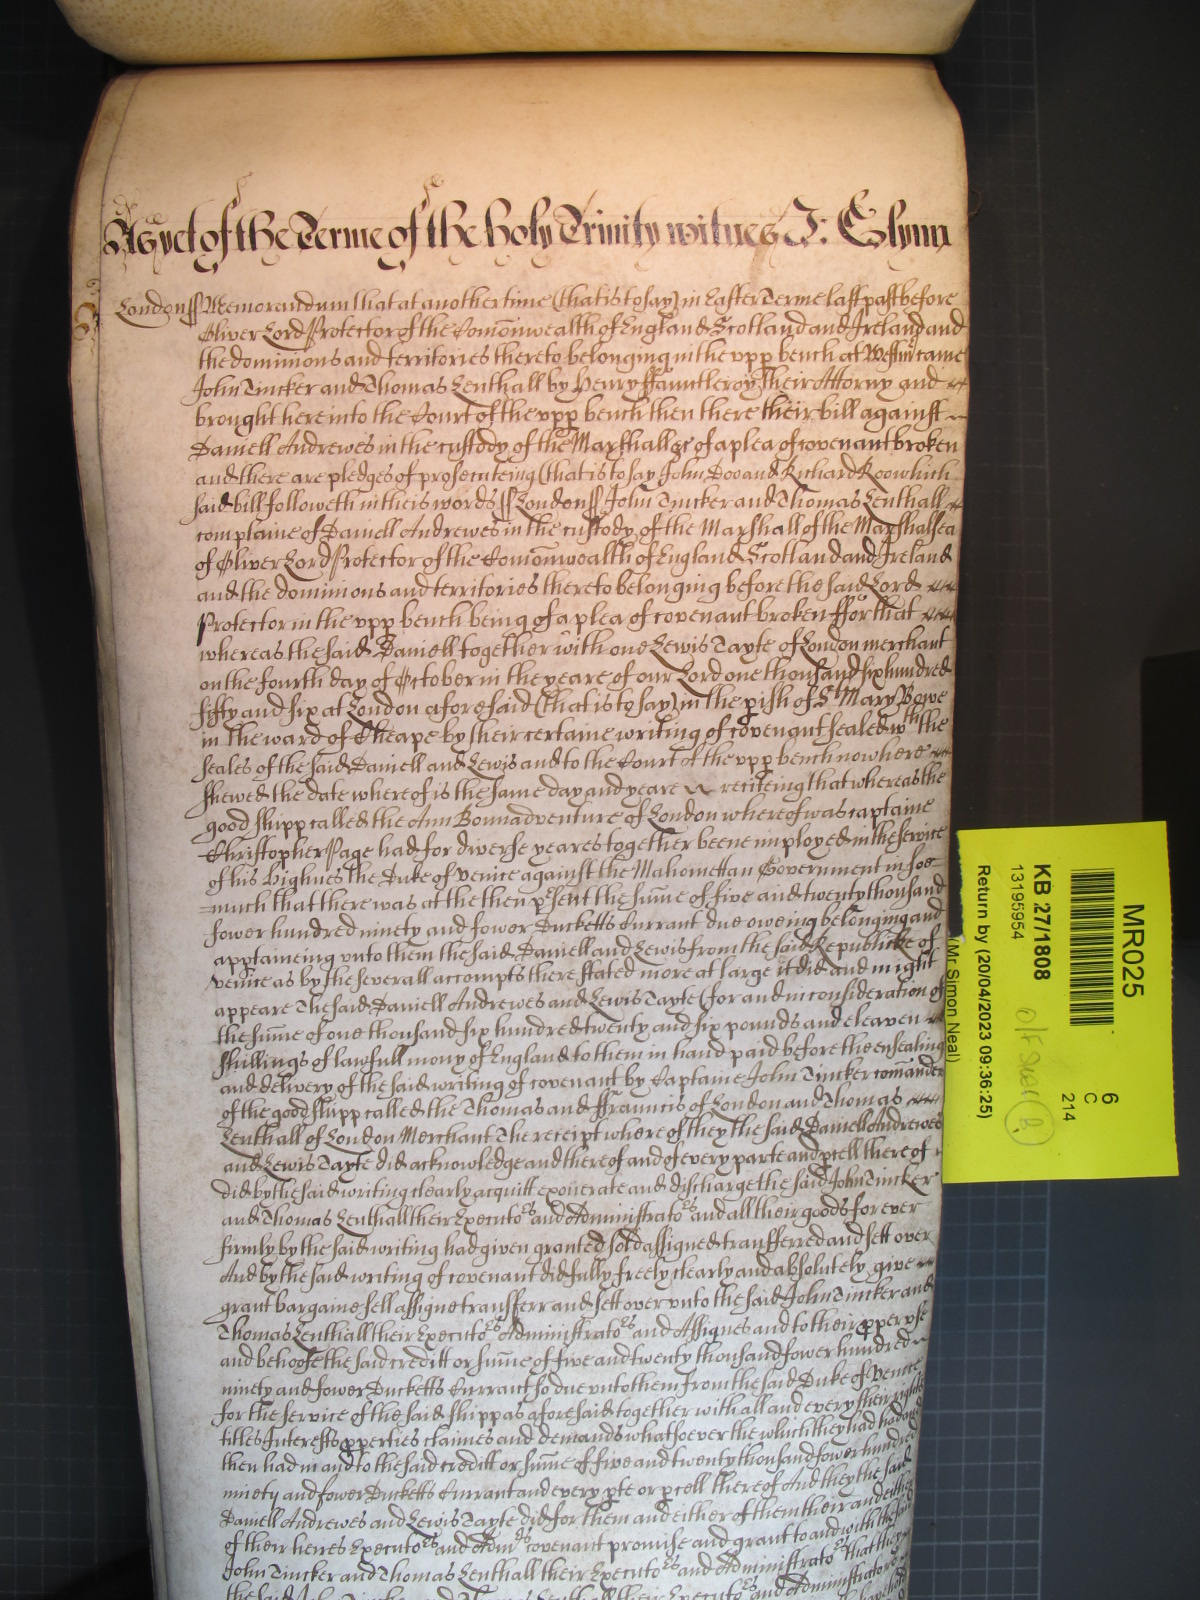 As yet of the Terme of the holy Trinity witnes J: Glynn
London ss Memorandum that at another time (that is to say) in Easter Terme last past before
Oliver Lord Protector of the Comōnwealth of England Scotland and Ireland and
the dominions and territories thereto belonging in the vpp bench at Westmr came
John Tincker and Thomas Lenthall by Henry ffauntleroy their Attorny and
brought here into the Court of the vpp bench then there their bill against
Daniell Andrewes in the custody of the Marshall &c of a plea of covenant broken
and there are pledges of prosecuteing (that is to say John Doo and Richard Roo which
said bill followeth in theis words ss London ss John Tincker and Thomas Lenthall
complaine of Daniell Andrewes in the custody of the Marshall of the Marshalsea
of Oliver Lord Protector of the Comōnwealth of England Scotland and Ireland
and the dominions and territories thereto belonging before the said Lord
Protector in the vpp bench being of a plea of covenant broken ffor that
whereas the said Daniell together with one Lewis Tayte of London merchant
on the fourth day of October in the yeare of our Lord one thousand six hundred
fifty and six at London aforesaid (that is to say) in the pish of St Mary Bowe
in the ward of Cheape by their certaine writing of covenant sealed wth the
seales of the said Daniell and Lewis and to the Court of the vpp bench now here
shewed the date whereof is the same day and yeare reciteing that whereas the
good shipp called the Ann Bonnadventure of London whereof was captaine
Christopher Page had for diverse yeares together beene imployed in the service
of his highnes the Duke of Venice against the Mahomettan Government in soe
much that there was at the then psent the sume of five and twenty thousand
fower hundred ninety and fower Ducketts Currant due oweing belonging and
apptaineing vnto them the said Daniell and Lewis from the said Republicke of
Venice as by the severall accompts there stated more at large it did and might
appeare The said Daniell Andrewes and Lewis Tayte (for and in consideration of
the sume of one thousand six hundred twenty and six pounds and eleaven
shillings of lawfull mony of England to them in hand paid before the ensealing
and delivery of the said writing of covenant by Captaine John Tincker comander
of the good shipp called the Thomas and ffrauncis of London and Thomas
Lenthall of London Merchant The receipt whereof they the said Daniell Andrewes
and Lewis Tayte did acknowledge and thereof and of every parte and pcell thereof
did by the said writing clearly acquitt exonerate and discharge the said John Tincker
and Thomas Lenthall their Executors and Administrators and all their goods for ever
firmly by the said writing had given granted sold assigned transferred and sett over
And by the said writing of covenant did fully freely clearly and absolutely give
grant bargaine sell assigne transferr and sett over vnto the said John Tincker and
Thomas Lenthall their Executors Administrators and Assignes and to their pper vse
and behoofe the said creditt or sume of five and twenty thousand fower hundred
ninety and fower Ducketts Currant so due vnto them from the said Duke of Venice
for the service of the said shipp as aforesaid together with all and every their rights
titles Interests pperties claimes and demands whatsoever the which they had had and
then had in and to the said creditt or sume of five and twenty thousand fower hundred
ninety and fower Ducketts Currant and every pte or pcell thereof And they the said
Daniell Andrewes and Lewis Tayte did for them and either of them their and either
of their heires Executors and Admrs covenant promise and grant to and with the said
John Tincker and Thomas Lenthall their Executors and Administrators that they
MR025
6
C
214
KB 27/1808
13195954
Return by (20/04/2023 09:36:25)
(Mr Simon Neal)